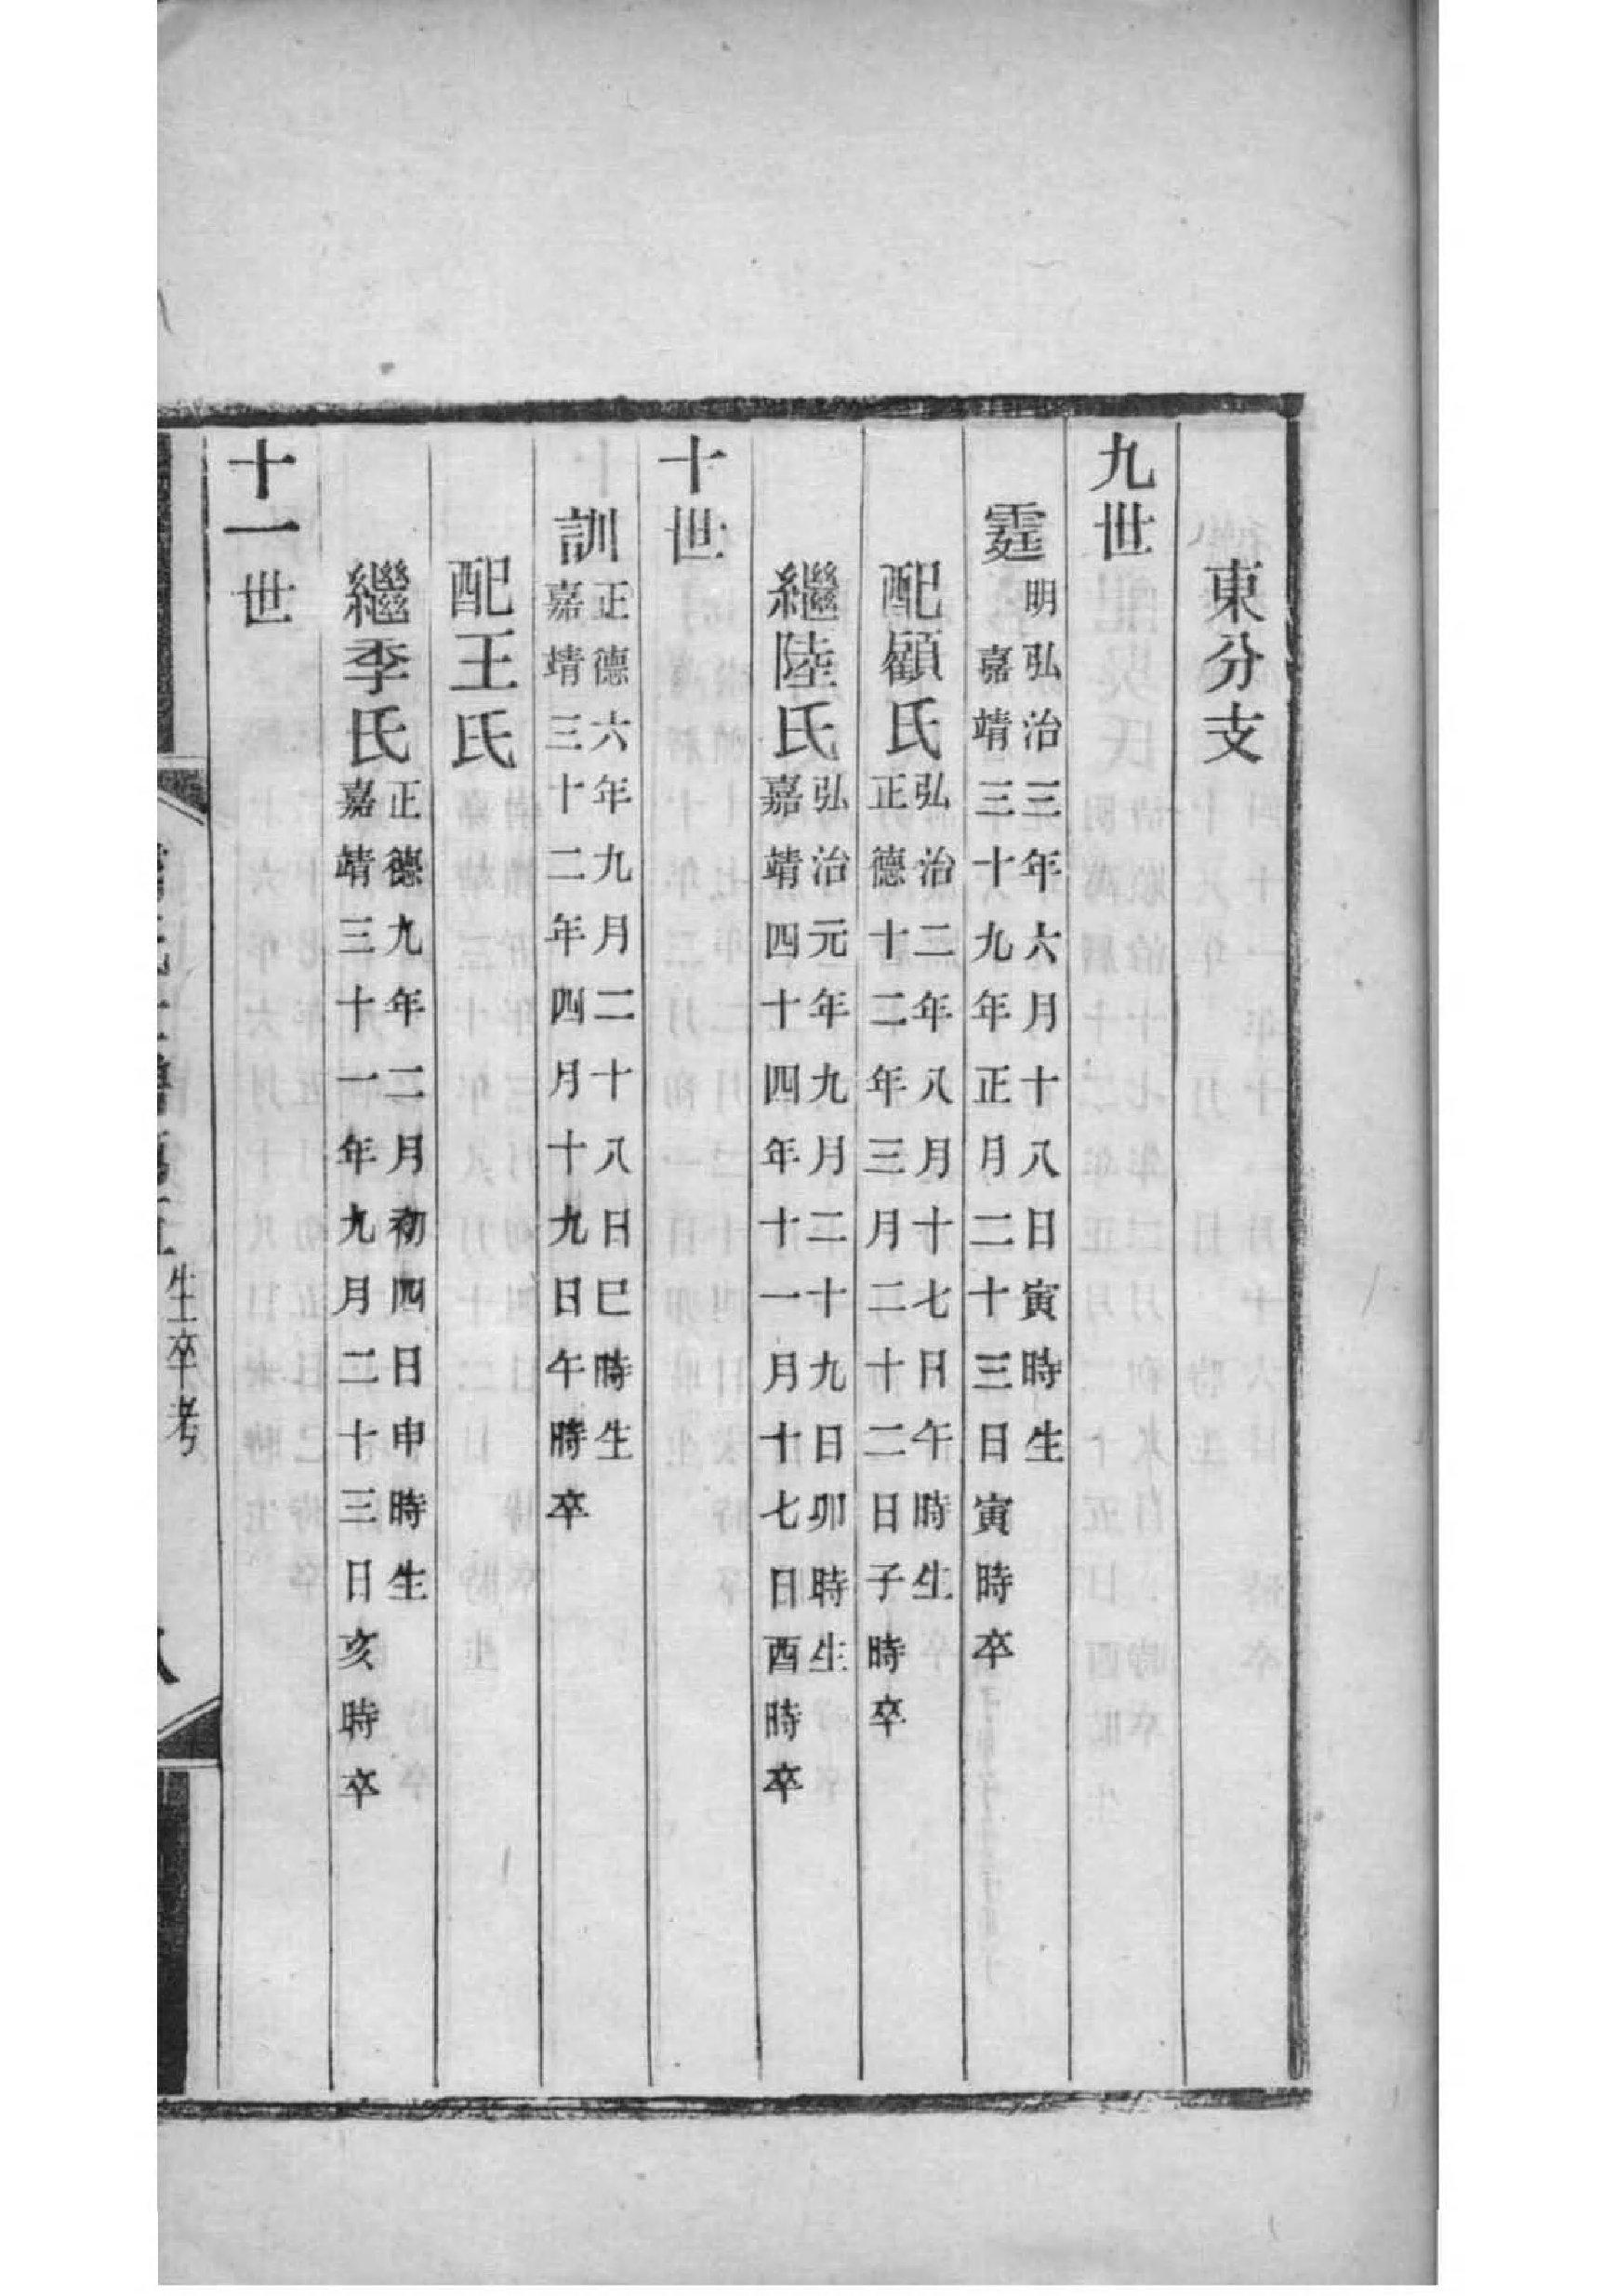 東分支
九世
霆
明弘治三年六月十八日寅時生
嘉靖三十九年正月二十三日寅時卒
配顧氏
弘治二年八月十七日午時生
正德十二年三月二十二日子時卒
繼陸氏
弘治元年九月二十九日卯時生
嘉靖四十四年十一月十七日酉時卒
十世
訓
正德六年九月二十八日巳時生
嘉靖三十二年四月十九日午時卒
配王氏
繼李氏
正德九年二月初四日申時生
嘉靖三十一年九月二十三日亥時卒
十一世
生卒考